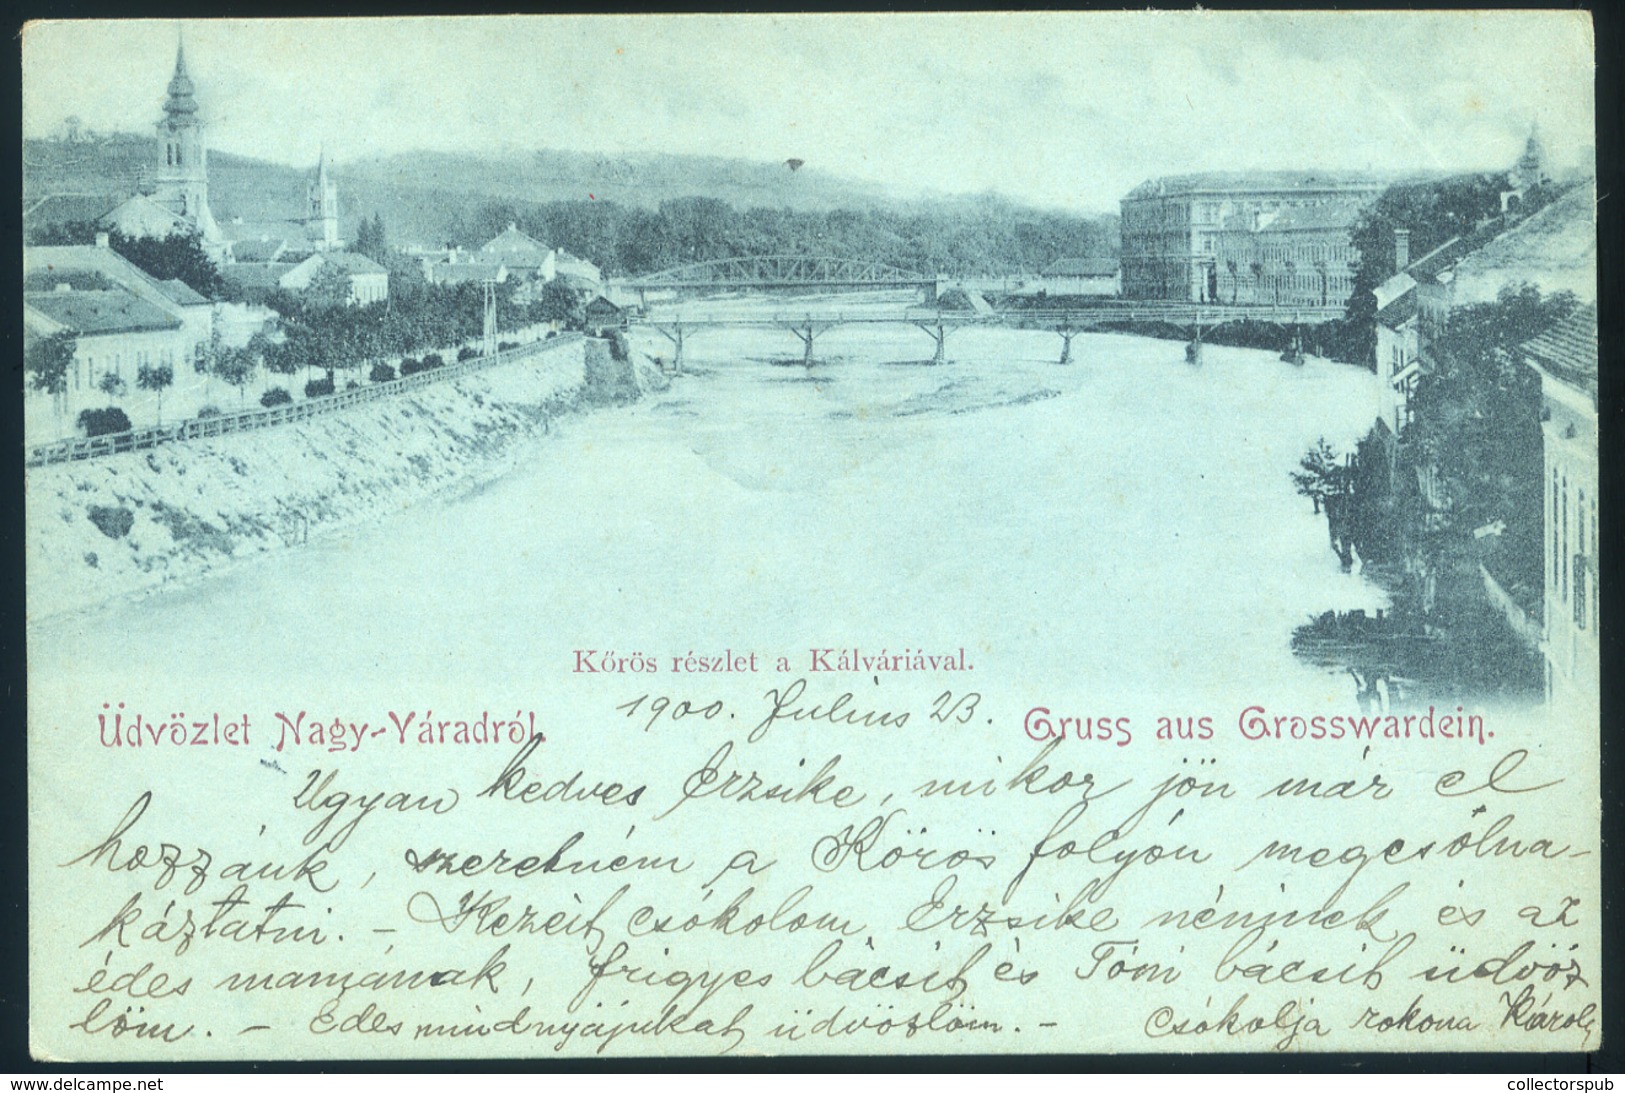 Kőrös részlet a Kálváriával.
1900. Július 23.
Üdvözlet Nagy-Váradról.
Gruss aus Grosswardein.
Ugyan kedves Erzsike, mikor jön már el
hozzánk, szeretném a Körös folyón megcsólna-
káztatni. - Kezeit csókolom Erzsike néninek és az
édes mamának, frigyes bácsit és Tóni bácsit üdvöz
löm. - Édes mindnyájukat üdvözlöm. - Csókolja rokona Károly
www.delcampe.net
collectorspub